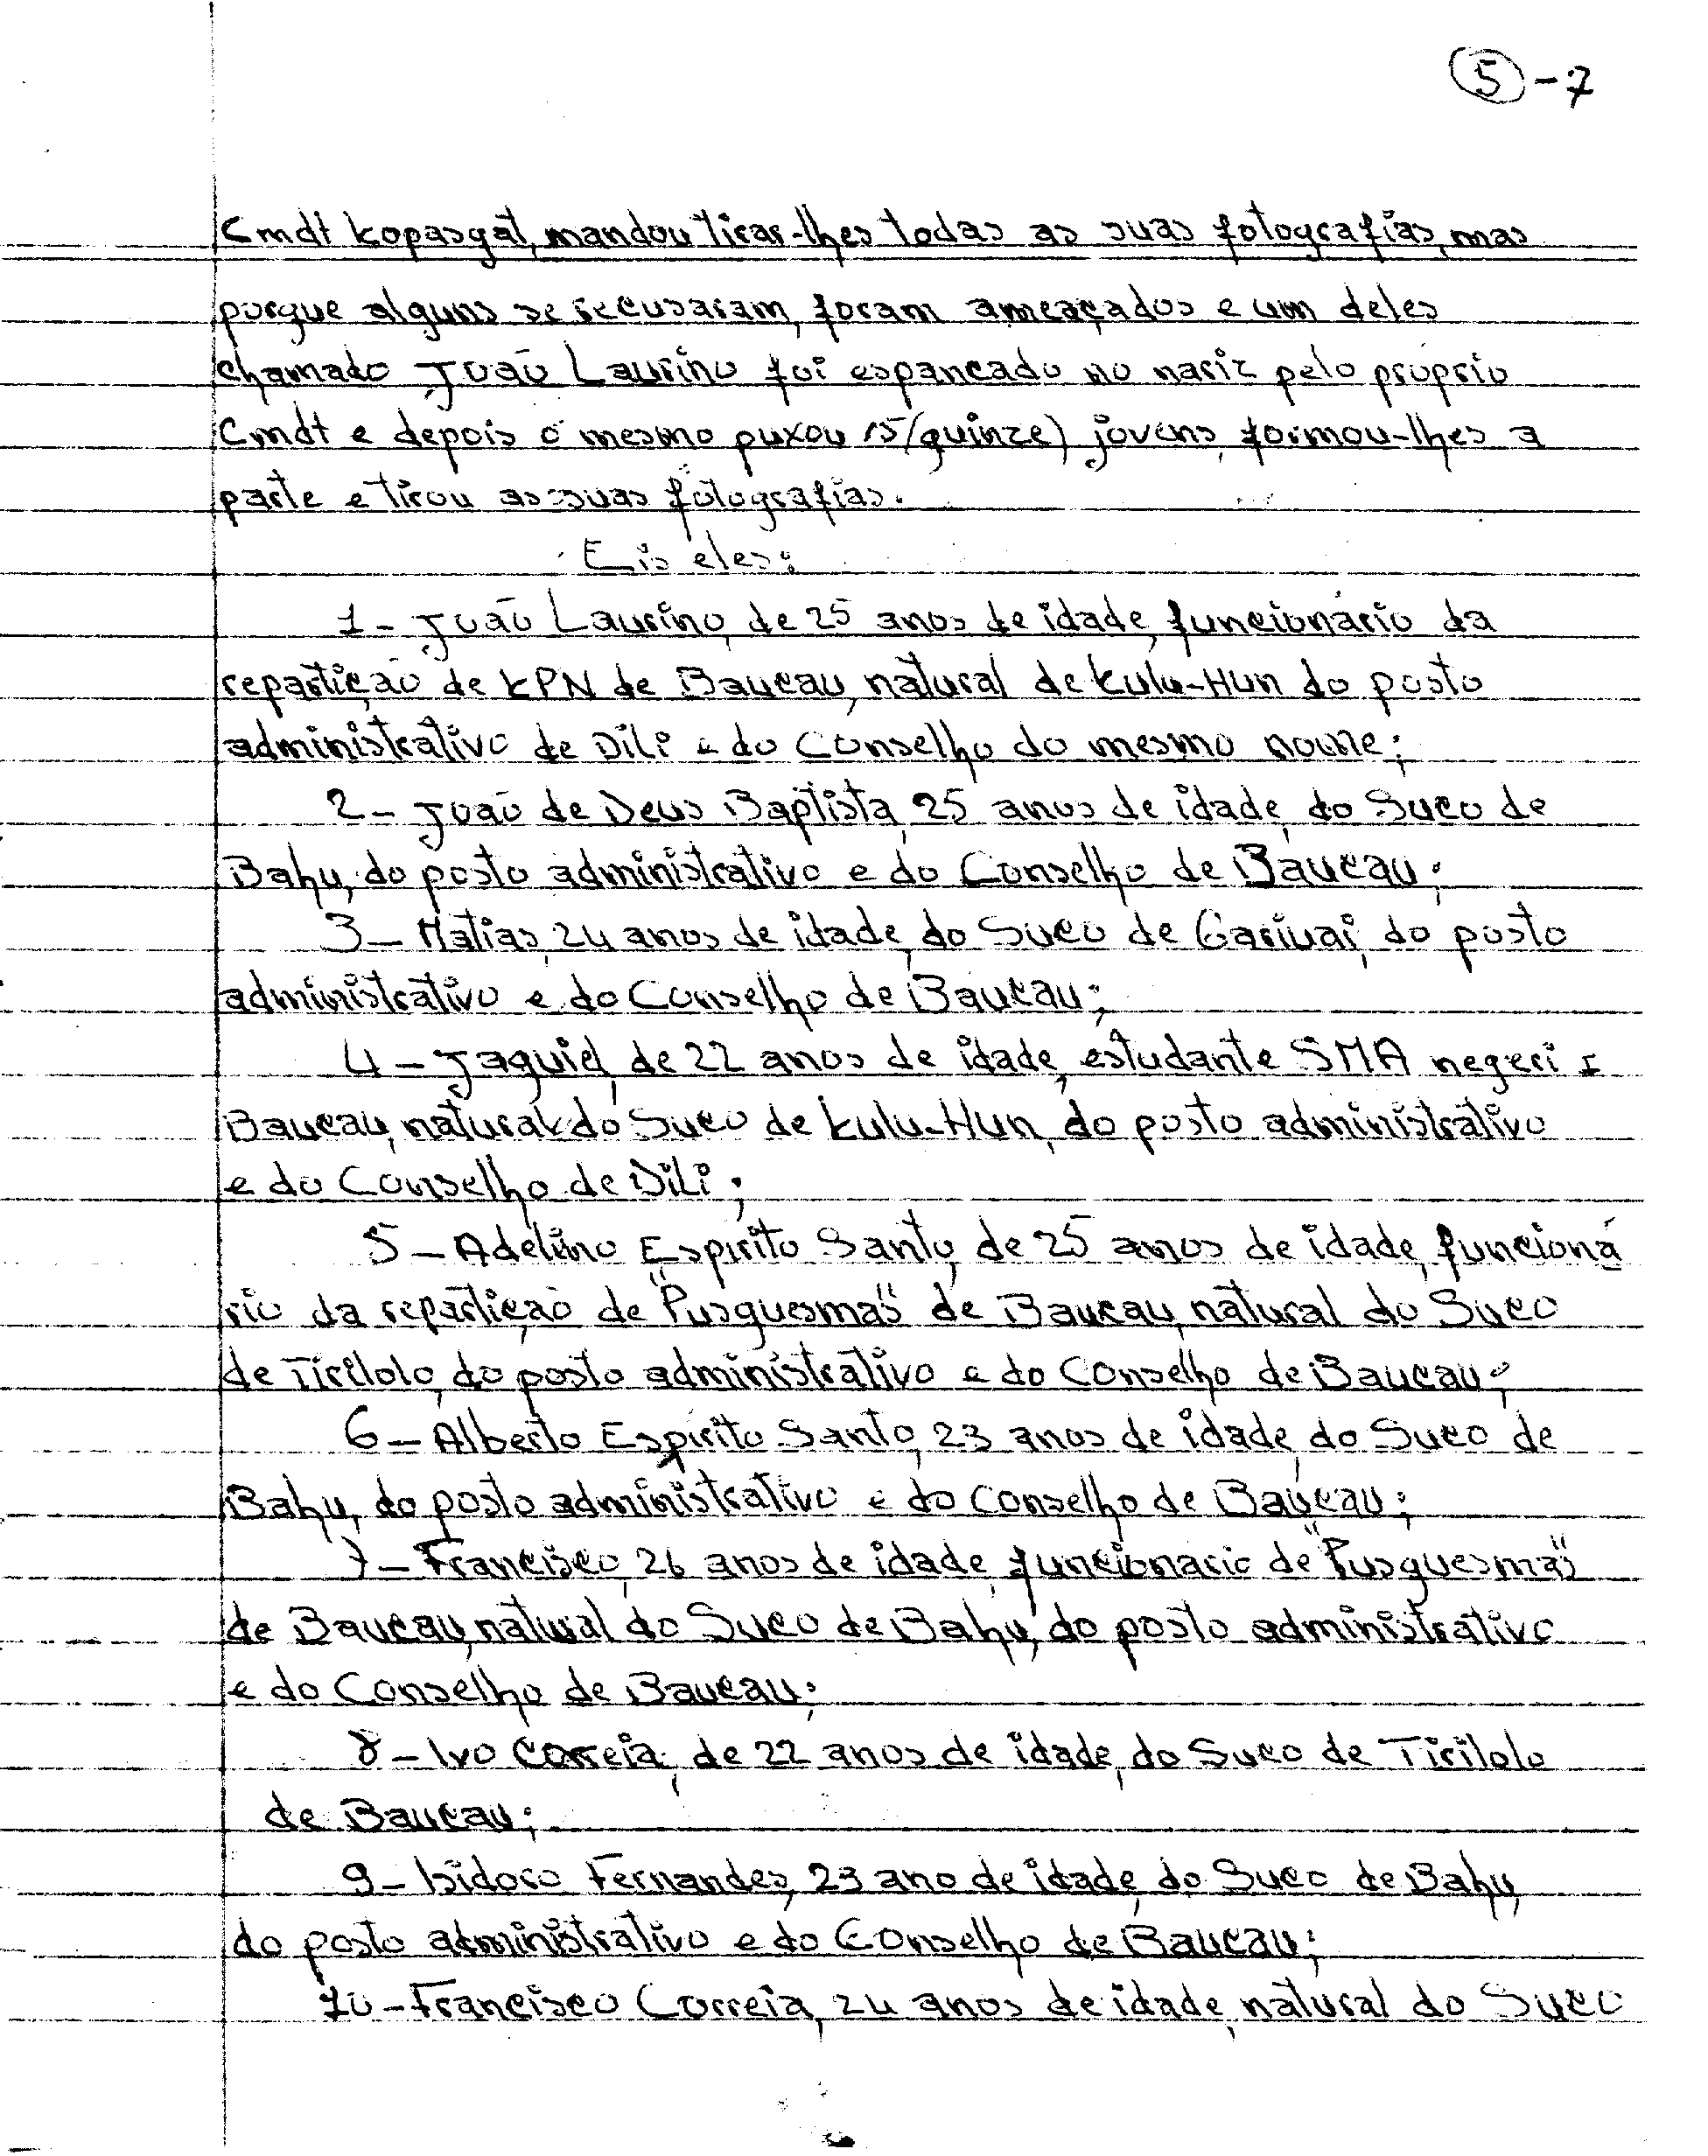 5 - 7
Cmdt kopasgat, mandou tirar-lhes todas as suas fotografias, mas
porque alguns se recusaram, foram ameaçados e um deles
chamado João Laurino foi espancado no nariz pelo próprio
Cmdt e depois o mesmo puxou 15 (quinze) jovens, formou-lhes a
parte e tirou as suas fotografias.
Eis eles:
1 - João Laurino, de 25 anos de idade, funcionário da
repartição de KPN de Baucau, natural de Kulu-Hun do posto
administrativo de Dili e do Conselho do mesmo nome;
2 - João de Deus Baptista, 25 anos de idade, do Suco de
Bahu, do posto administrativo e do Conselho de Baucau;
3 - Matias, 24 anos de idade, do Suco de Gariuai, do posto
administrativo e do Conselho de Baucau;
4 - Jaquiel, de 22 anos de idade, estudante SMA negeri I
Baucau, natural do Suco de Kulu-Hun, do posto administrativo
e do Conselho de Dili;
5 - Adelino Espirito Santo, de 25 anos de idade, funcioná
rio da repartição de "Pusquesmas" de Baucau, natural do Suco
de Tirilolo, do posto administrativo e do Conselho de Baucau;
6 - Alberto Espirito Santo, 23 anos de idade, do Suco de
Bahu, do posto administrativo e do Conselho de Baucau;
7 - Francisco, 26 anos de idade, funcionario de "Pusquesmas"
de Baucau, natural do Suco de Bahu, do posto administrativo
e do Conselho de Baucau;
8 - Ivo Correia, de 22 anos de idade, do Suco de Tirilolo
de Baucau;
9 - Isidoro Fernandes, 23 ano de idade, do Suco de Bahu,
do posto administrativo e do Conselho de Baucau;
10 - Francisco Correia, 24 anos de idade, natural do Suco